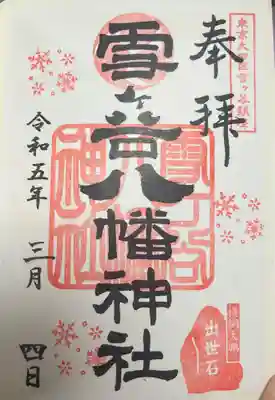 東京大田区雪ヶ谷鎮座
奉拝
雪ヶ谷八幡神社
雪ヶ谷八幡神社
令和五年 三月 四日
横綱大鵬
出世石